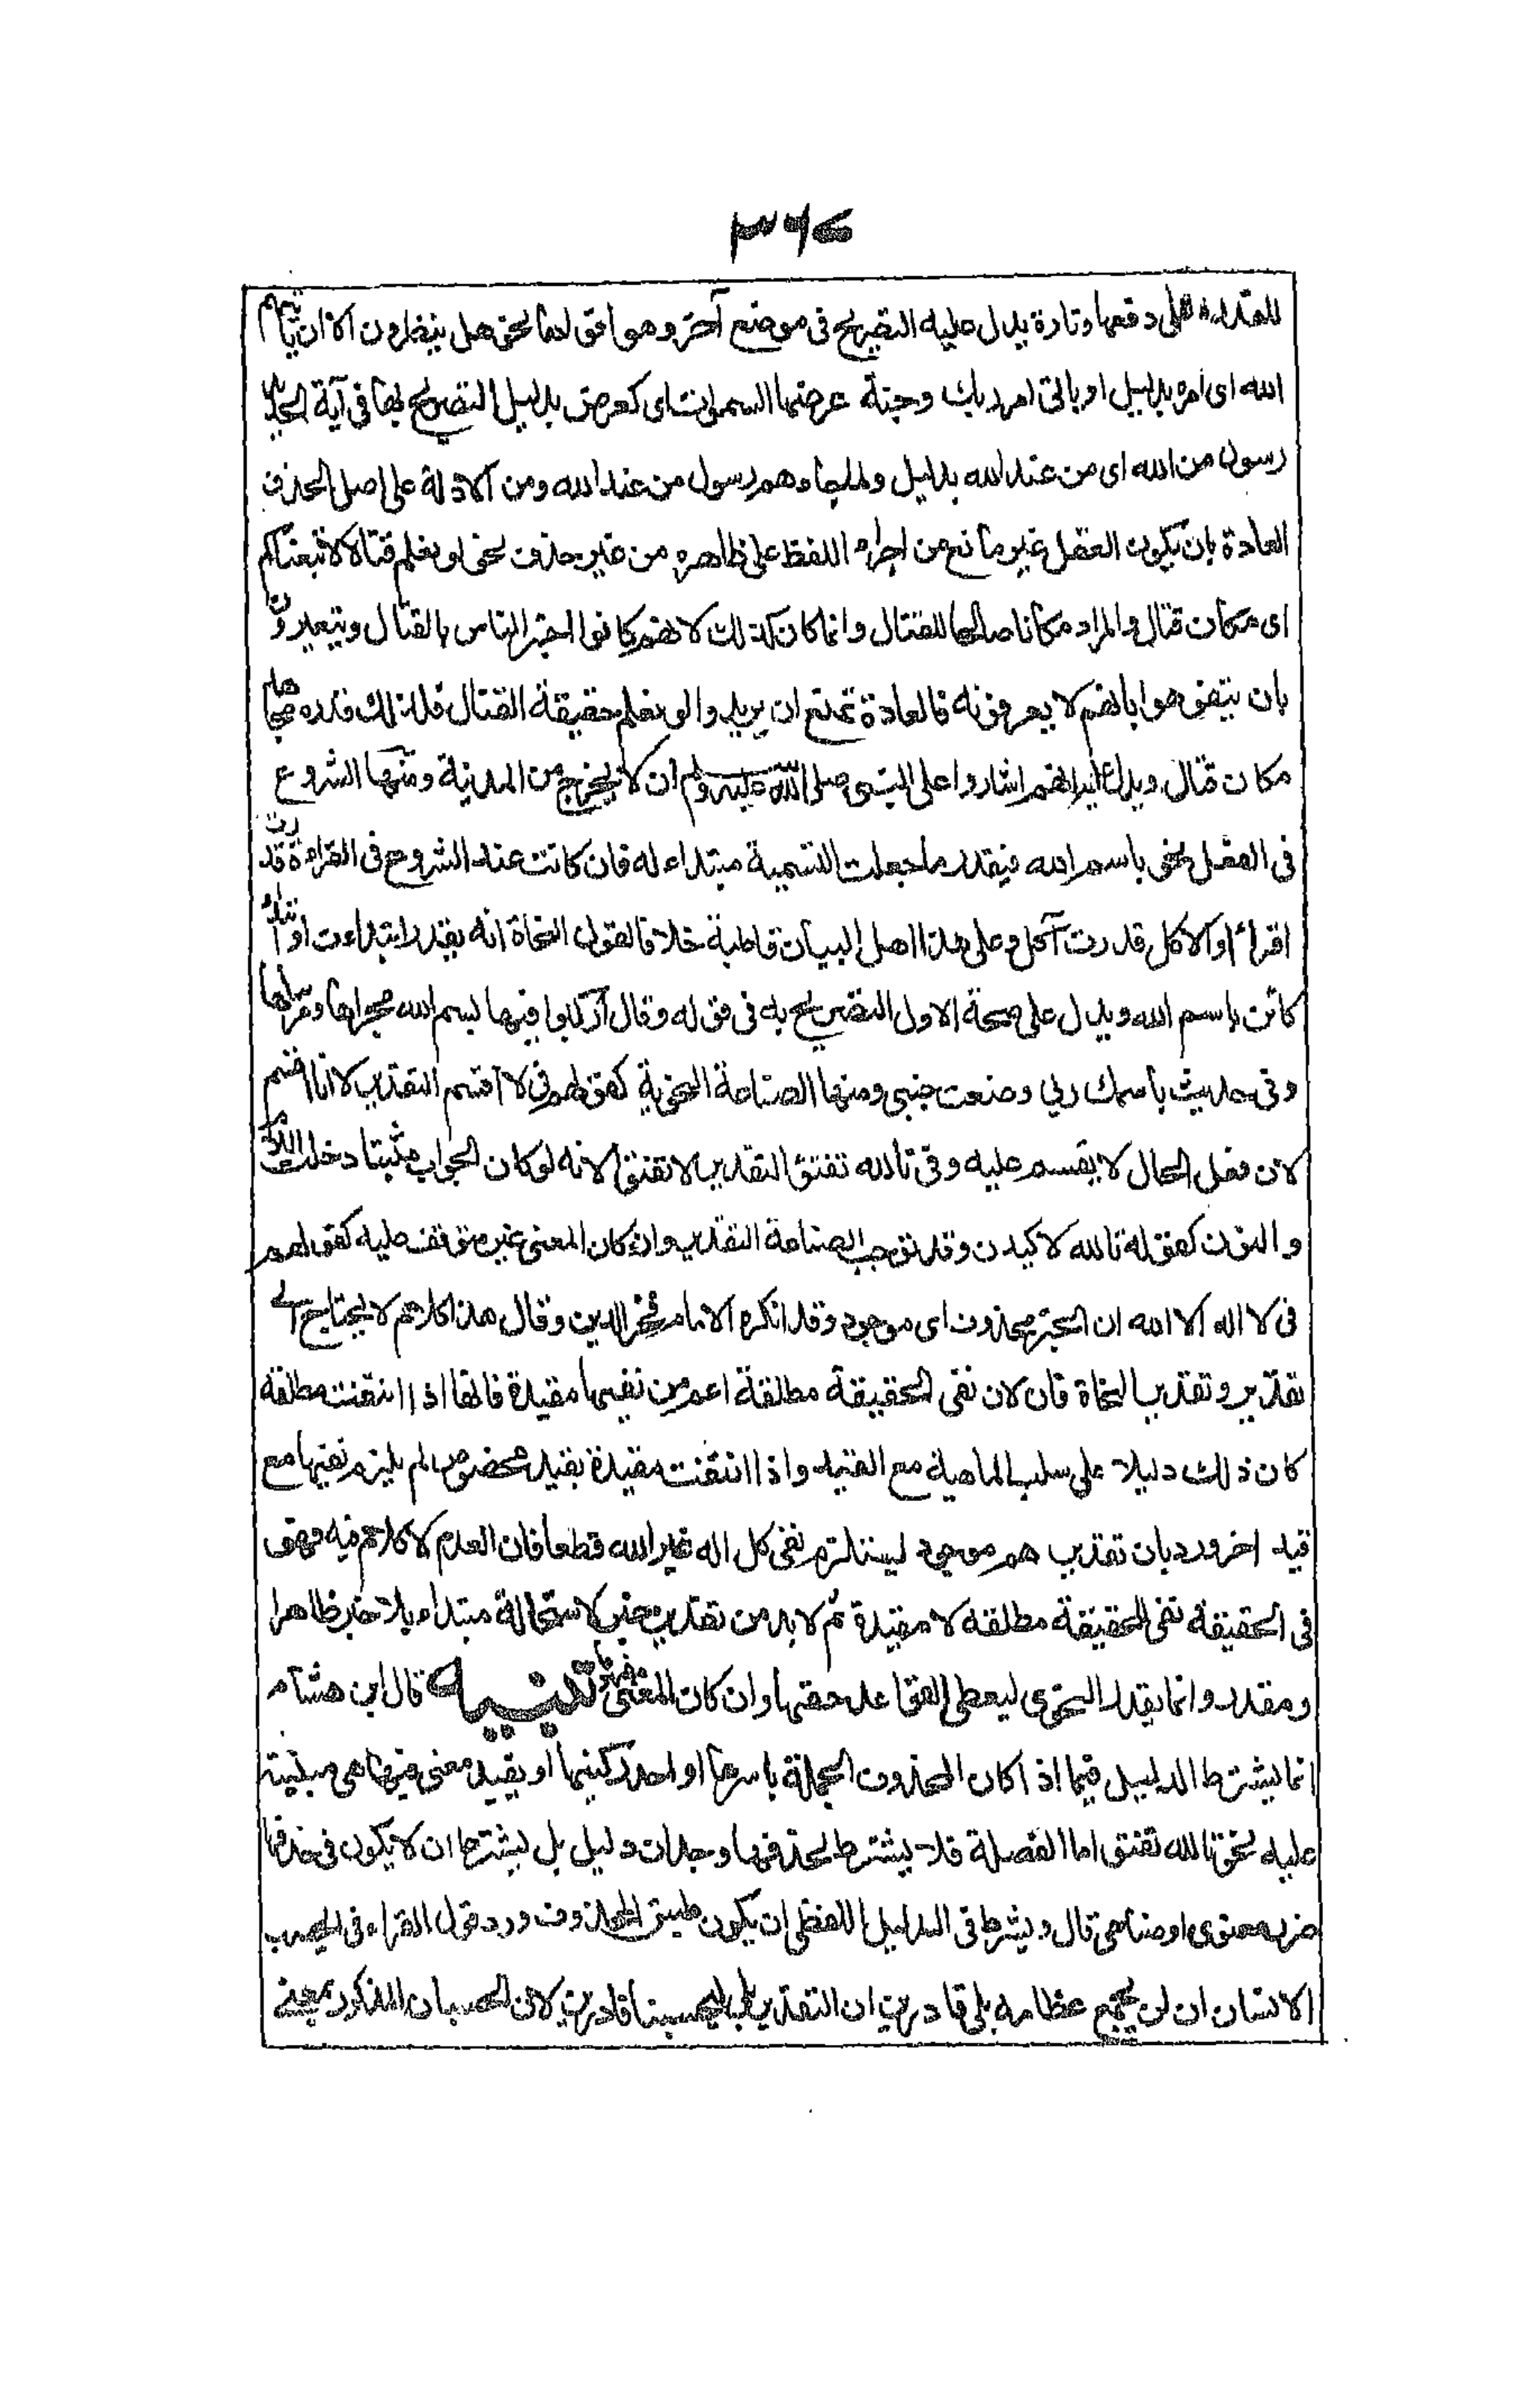 ٣٦٤
للقدرة على دفعها وتارة يدل عليه التصريح فى موضع آخر وهو اقوٰها نحو هل ينظرون الا ان ياتيهم
الله اى امره بدليل او ياتى امر ربك وجنة عرضها السموات اى كعرض بدليل التصريح بها فى آية الحديد
رسول من الله اى من عند الله بدليل ولما جاءهم رسول من عند الله ومن الادلة على اصل الحذف
العادة بان يكون العقل غير مانع من اجراء اللفظ على ظاهره من غير حذف نحو لو نعلم قتالا لاتبعناكم
اى مكان قتال والمراد مكانا صالحا للقتال وانما كان كذلك لانهم كانوا اخبر الناس بالقتال ويتعيرون
بان يتفوهوا بانهم لا يعرفونه فالعادة تمنع ان يريدوا لو نعلم حقيقة القتال فلذلك قدره مجاهد
مكان قتال ويدل عليه انهم اشاروا على النبى صلى الله عليه ولم ان لا يخرج من المدينة ومنها الشروع
فى الفعل نحو باسم الله فيقدر ما جعلت التسمية مبتداء له فان كانت عند الشروع فى القراءة قدرت
اقراء او الاكل قدرت آكل وعلى هذا اهل البيان قاطبة خلافا لقول النحاة انه يقدر ابتداءت او ابتداء
كائن باسم الله ويدل على صحة الاول التصريح به فى قوله وقال اركبوا فيها بسم الله مجراها ومرساها
وفى حديث باسمك ربي وضعت جنبى ومنها الصناعة النحوية كقولهم فى لا اقسم التقدير لانا اقسم
لان فعل الحال لا يقسم عليه وفى تالله تفتؤ التقدير لا تفتؤ لانه لو كان الجواب مثبتا دخلت اللام
والنون كقوله تالله لاكيدن وقد توجب الصناعة التقدير وان كان المعنى غير متوقف عليه كقولهم
فى لا اله الا الله ان الخبر محذوف اى موجود وقد انكره الامام فخر الدين وقال هذا كلام لا يحتاج الى
تقدير وتقدير النحاة فان لان نفى الحقيقة مطلقة اعم من نفيها مقيدة فانها اذا انتفت مطلقة
كان ذلك دليلا على سلب الماهية مع القيد واذا انتفت مقيدة بقيد مخصوص لم يلزم نفيها مع
قيد اخر ورد بان تقديرهم موجود يستلزم نفى كل اله غير الله قطعا فان العدم لا كلام فيه فهو
فى الحقيقة نفى للحقيقة مطلقه لا مقيدة ثم لا بد من تقدير خبر لاستحالة مبتداء بلا خبر ظاهرا
ومقدر وانما يقدر النحوى ليعطى القواعد حقها وان كان المعنى مفهوما تنبيه قال ابن هشام
انما يشترط الدليل فيما اذا كان المحذوف الجملة باسرها او احد ركنيها او يفيد معنى فيها هى مبنية
عليه نحو تالله تفتؤ اما الفضلة فلا يشترط لحذفها وجدان دليل بل يشترط ان لا يكون فى حذفها
ضرر معنوى او صناعى قال ويشترط فى الدليل اللفظى ان يكون طبق المحذوف ورد قول الفراء فى ايحسب
الانسان ان لن نجمع عظامه بلى قادرين ان التقدير بلى ليحسبنا قادرين لان الحسبان المذكور بمعنى